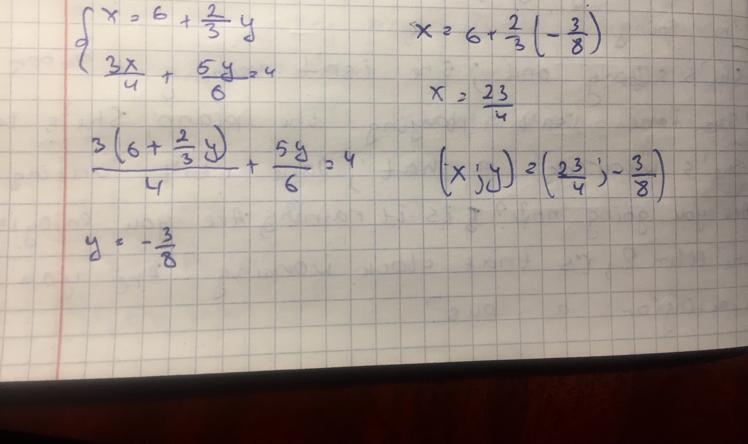 { x = 6 + 2/3 y
3x/4 + 5y/6 = 4
3(6 + 2/3 y)/4 + 5y/6 = 4
y = -3/8
x = 6 + 2/3 (-3/8)
x = 23/4
(x; y) = (23/4; -3/8)